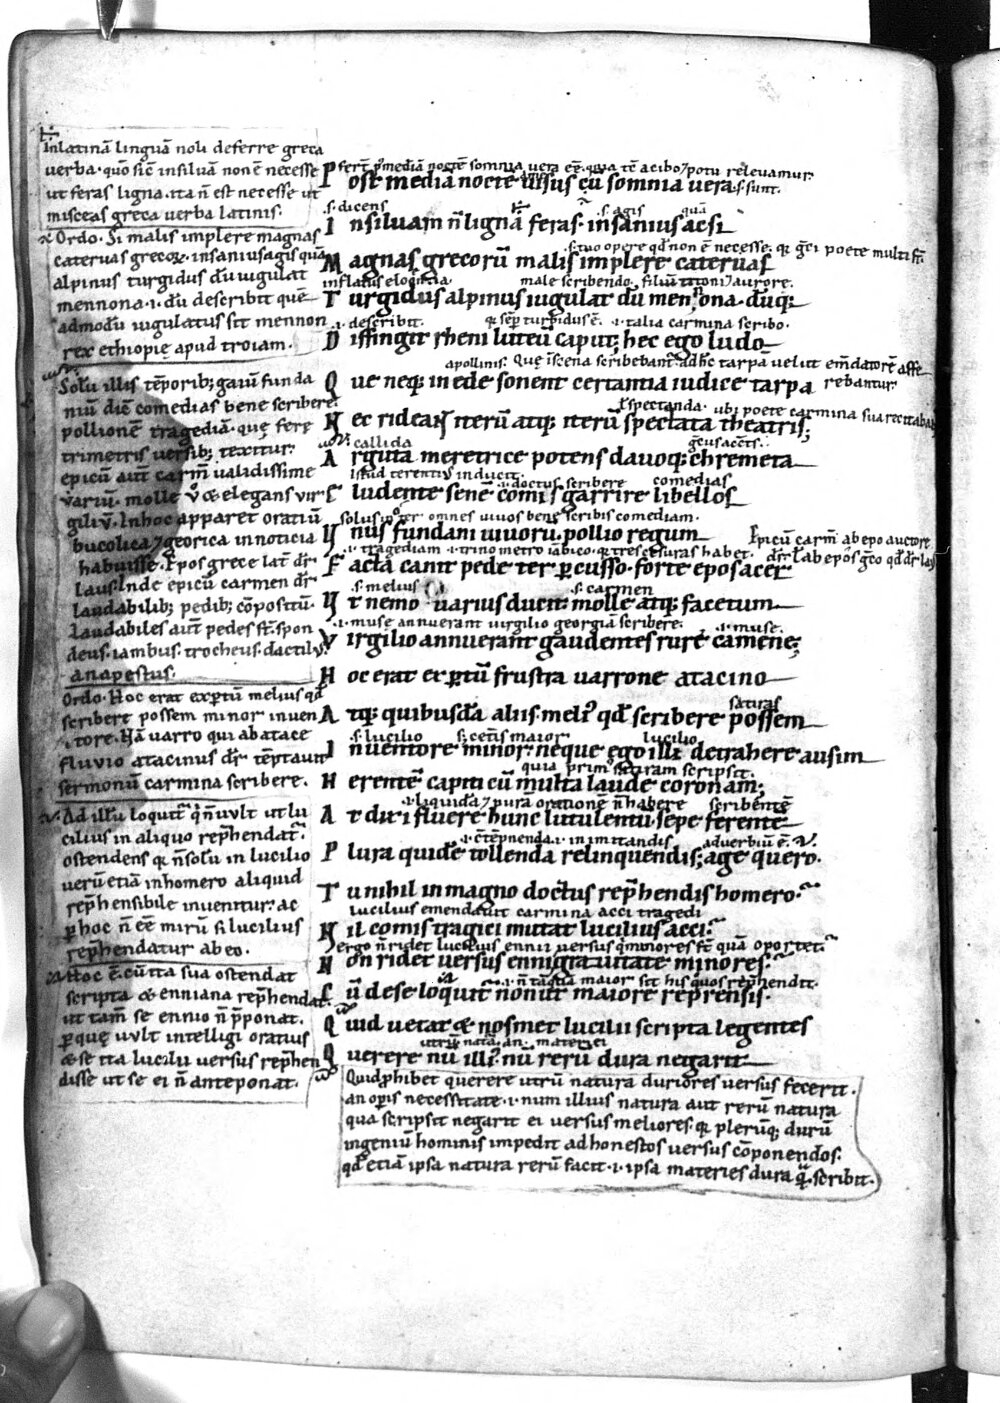 In latinā linguā noli deferre greca
uerba· quo sic in siluam non ē necesse
ut feras ligna· ita n̄ est necesse ut
misceas greca uerba latinis.
Ordo. Si malis implere magnas
cateruas grecoꝝ· insanius agis quā
alpinus turgidus dū iugulat
mennona ·i· dū describit quē
admodū iugulatus sit mennon
rex ethiopię apud troiam.
Solū illis tēporibꝫ gaiū funda
niū dic̄ comedias bene scribere·
pollionē tragediā· quę fere
trimetris uersibꝫ texitur·
epicū aut̄ carm̄ ualidissime
variū· molle v̊ & elegans vir
giliū. In hoc apparet oratiū
bucolica ⁊ georica in noticia
habuisse. Epos grece lat̄ dr̄
laus. Inde epicū carmen dr̄
laudabilibꝫ pedibꝫ cōpositū·
laudabiles aut̄ pedes st̄· spon
deus· iambus· trocheus· dactilꝰ
anapestus.
Ordo. Hoc erat exꝑtū melius qđ
scribere possem minor inuen
tore. Nā uarro qui ab atace
fluuio atacinus dr̄ tēptauit
sermonū carmina scribere.
Ad illū loquit̄ q̄ n̄ uult ut lu
cilius in aliquo rep̄hendat̄.
ostendens qꝫ n̄ solū in lucilio
uerū etiā in homero aliquid
rep̄hensibile inuenitur· ac
ꝑ hoc n̄ ēē mirū si lucilius
rep̄hendatur ab eo.
Hoc ē· cū ita sua ostendat
scripta & enniana rep̄hendat
ut tam̄ se ennio n̄ p̄ponat.
ꝑ quę uult intelligi oratius
& se ita lucilii uersus rep̄hen
disse ut se ei n̄ anteponat.
Post mediā noctē uisus cū somnia uera
·s· dicens
In siluam n̄ lignā feras· insanius ac si
·s· tuo opere qđ non ē necesse·
Magnas grecorū malis implere cateruas
inflatus eloq̄ntia· male scribendo·
Turgidus alpinus iugulat dū mennona· dūqꝫ
·i· describit. ·i· talia carmina scribo·
Diffingit rheni luteū caput· hec ego ludo
apollinis· Quę ī scena scribebant̄
Que neqꝫ in ede sonent certantia iudice tarpa
·i· spectanda· ubi poete carmina sua recitabāt
Nec redeant iterū atqꝫ iterū spectata theatris;
callida
Arguta meretrice potens dauoqꝫ chremeta
istud terentiꝰ inducit· ·i· doctus scribere comedias
Eludente senē comis garrire libellos
omnes uiuos bene scribis comediam·
Vnus fundani uiuorū· pollio regum
Epicū carm̄ ab epo auctore
Facta canit pede ter ꝑcusso· forte epos acer
·s· melius ·s· carmen
Vt nemo uarius ducit· molle atqꝫ facetum
·i· muse annuerant virgilio georgia scribere· ·i· muse·
Virgilio annuerant gaudentes rure camene;
Hoc erat exꝑtū frustra uarrone atacino
saturas
Atqꝫ quibusdā aliis· meliꝰ qđ scribere possem
·s· lucilio lucilio
Inuentore minor· neque ego illi detrahere ausim
quia primꝰ saturam scripsit·
Herentē capiti cū multa laude coronam;
liquida ⁊ pura oratione n̄ habere scribentē
At dixi fluere hunc lutulentū· sepe ferentē
in imitandis· aduerbiū ē·
Plura quidē tollenda relinquendis; age quero·
Tu nihil in magno doctus rep̄hendis homero·
lucilius emendauit carmina acci tragedi
Nil comis tragici mutat lucilius acci·
ergo n̄ ridet lucilius ennii uersus minores st̄ quā oportet·
Non ridet uersus enni grauitate minores·
Cū de se loquit̄ non ut maiore reprensis·
Quid uetat & nosmet lucilii scripta legentes
Querere nū illiꝰ· nū rerū dura negarit
Quid ꝓhibet querere utrū natura duriores uersus fecerit·
an oꝑis necessitate· ·i· num illius natura aut rerū natura
qua scripsit negarit ei uersus meliores· qꝫ plerūqꝫ durū
ingeniū hominis impedit ad honestos uersus cōponendos·
qđ etiā ipsa natura rerū facit· ·i· ipsa materies dura q̄ scribit·